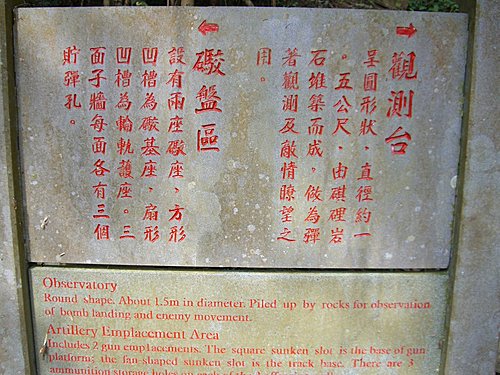 觀測台
呈圓形狀，直徑約一
。五公尺，由岩
石堆築而成，做為彈
著觀測及敵情瞭望之
用。
礮盤區
設有兩座礮座，方形
凹槽為礮基座，扇形
凹槽為輪軌護座。三
面子牆每面各有三個
貯彈孔。
Observatory
Round shape. About 1.5m in diameter. Piled up by rocks for observation
of bomb landing and enemy movement.
Artillery Emplacement Area
Includes 2 gun emplacements. The square sunken slot is the base of gun
platform; the fan-shaped sunken slot is the track base. There are 3
ammunition storage holes on each of the